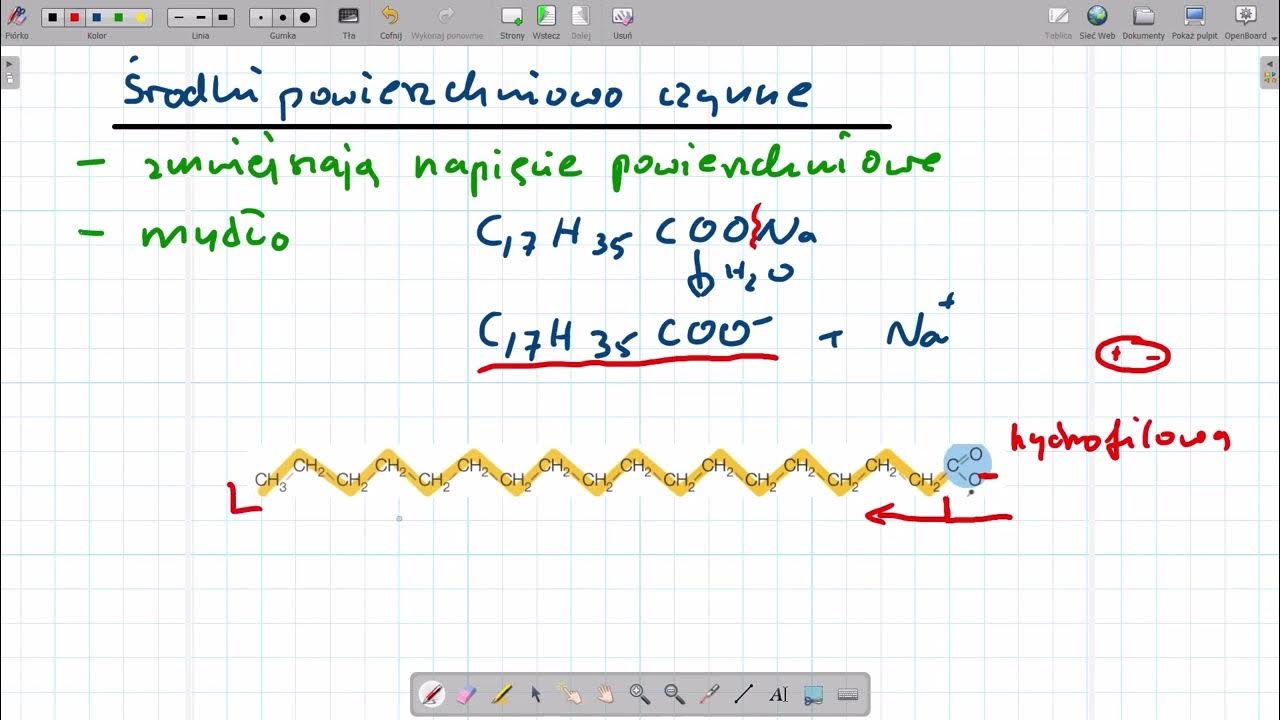 Piórko Kolor Linia Gumka Tła Cofnij Wykonaj ponownie Strony Wstecz Dalej Usuń Tablica Sieć Web Dokumenty Pokaż pulpit OpenBoard
Środki powierzchniowo czynne
- zmniejszają napięcie powierzchniowe
- mydło
C₁₇H₃₅COONa
H₂O
C₁₇H₃₅COO⁻ + Na⁺
+ -
hydrofilowa
CH₃ CH₂ CH₂ CH₂ CH₂ CH₂ CH₂ CH₂ CH₂ CH₂ CH₂ CH₂ CH₂ CH₂ CH₂ CH₂ CH₂ C O O -
AI